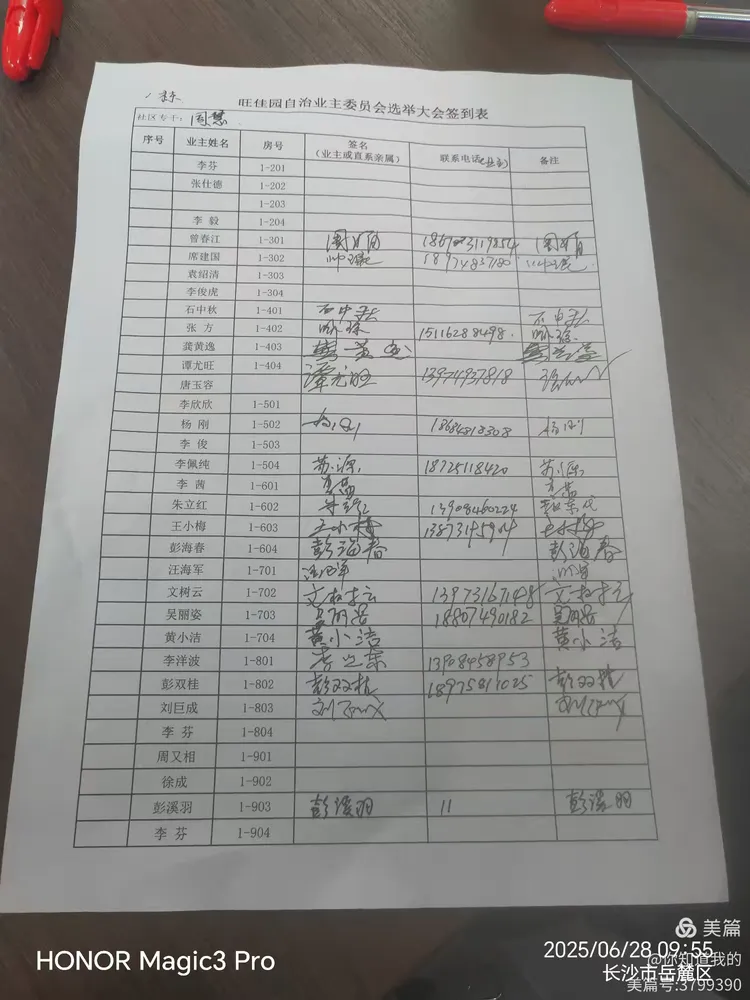 1栋
旺佳园自治业主委员会选举大会签到表
社区专干：周慧
序号 业主姓名 房号 签名（业主或直系亲属） 联系电话 备注
李芬 1-201
张仕德 1-202
1-203
李毅 1-204
曾春江 1-301
席建国 1-302
袁绍清 1-303
李俊虎 1-304
石中秋 1-401 石中秋 石中秋
张方 1-402 15116288498
龚黄逸 1-403
谭尤旺 1-404 谭尤旺 13974937818
唐玉容
李欣欣 1-501
杨刚 1-502 杨刚
李俊 1-503
李佩纯 1-504 苏源 18725118420 苏源
李茜 1-601 李茜
朱立红 1-602 朱立红 13908460224
王小梅 1-603 王小梅 王小梅
彭海春 1-604 彭海春 彭海春
汪海军 1-701 汪海军
文树云 1-702 文树云 13973167148 文树云
吴丽姿 1-703 吴丽姿 18807490182 吴丽姿
黄小洁 1-704 黄小洁 黄小洁
李洋波 1-801 13908458953
彭双桂 1-802 彭双桂 18975811025 彭双桂
刘巨成 1-803
李芬 1-804
周又相 1-901
徐成 1-902
彭溪羽 1-903 彭溪羽 11 彭溪羽
李芬 1-904
HONOR Magic3 Pro
2025/06/28 09:55
长沙市岳麓区
美篇
@你知道我的
美篇号:3799390